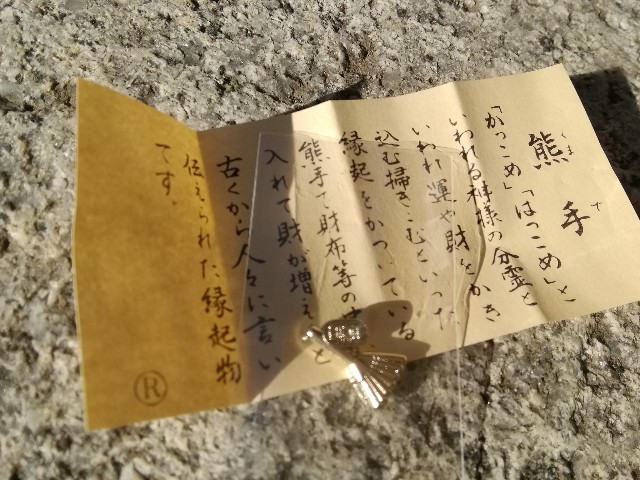 熊手
くまで
「かっこめ」「はっこめ」と
いわれる神様の分霊と
いわれ運や財をかき
込む掃きこむといった
縁起をかついでいる
熊手で財布等の
入れて財が増え と
古くから人々に言い
伝えられた縁起物
です。
®